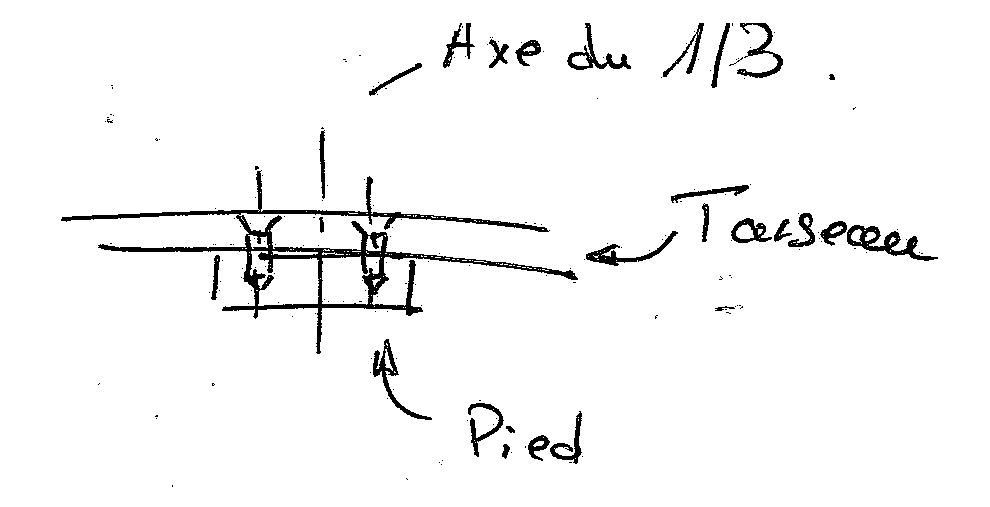 Axe du 1/3.
Tasseau
Pied